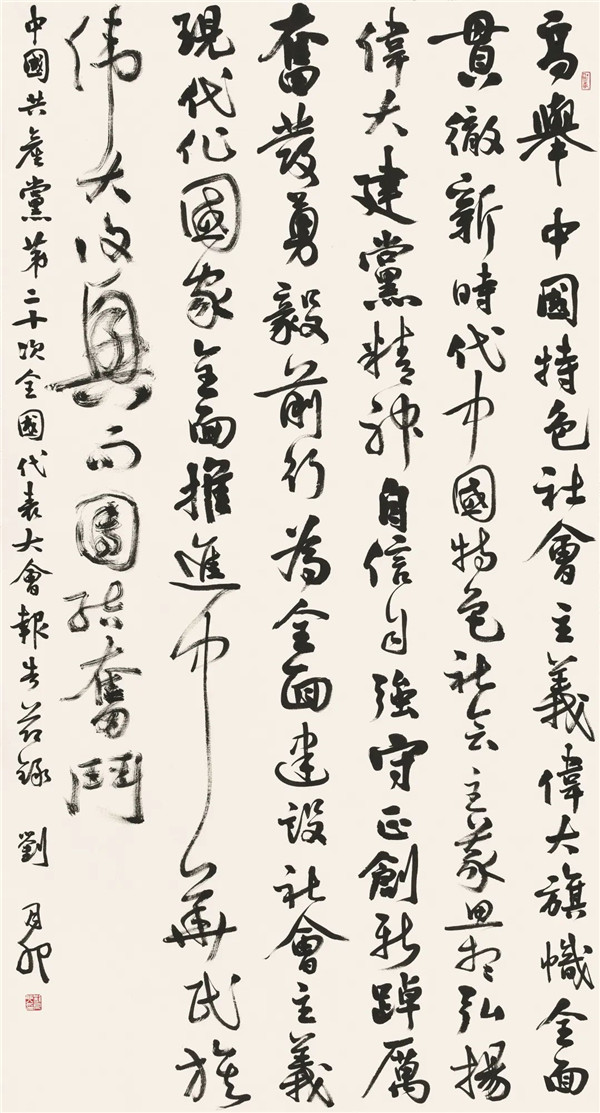 高舉中國特色社會主義偉大旗幟全面
貫徹新時代中國特色社会主義思想弘揚
偉大建黨精神自信自強守正創新踔厲
奮發勇毅前行為全面建設社會主義
現代化國家全面推進中華民族
伟大復興而團結奮鬥
中國共產黨第二十次全國代表大會報告节錄 劉月卯